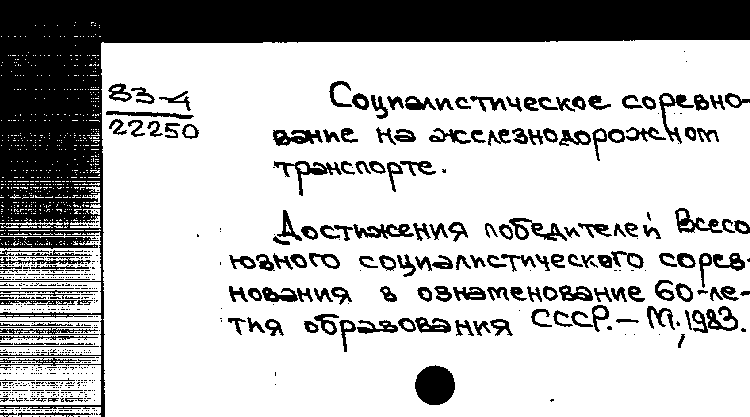 83-4
22250
Социалистическое соревно-
вание на железнодорожном
транспорте.
Достижения победителей Всесо
юзного социалистического сорев-
нования в ознаменование 60-ле-
тия образования СССР. - М., 1983.